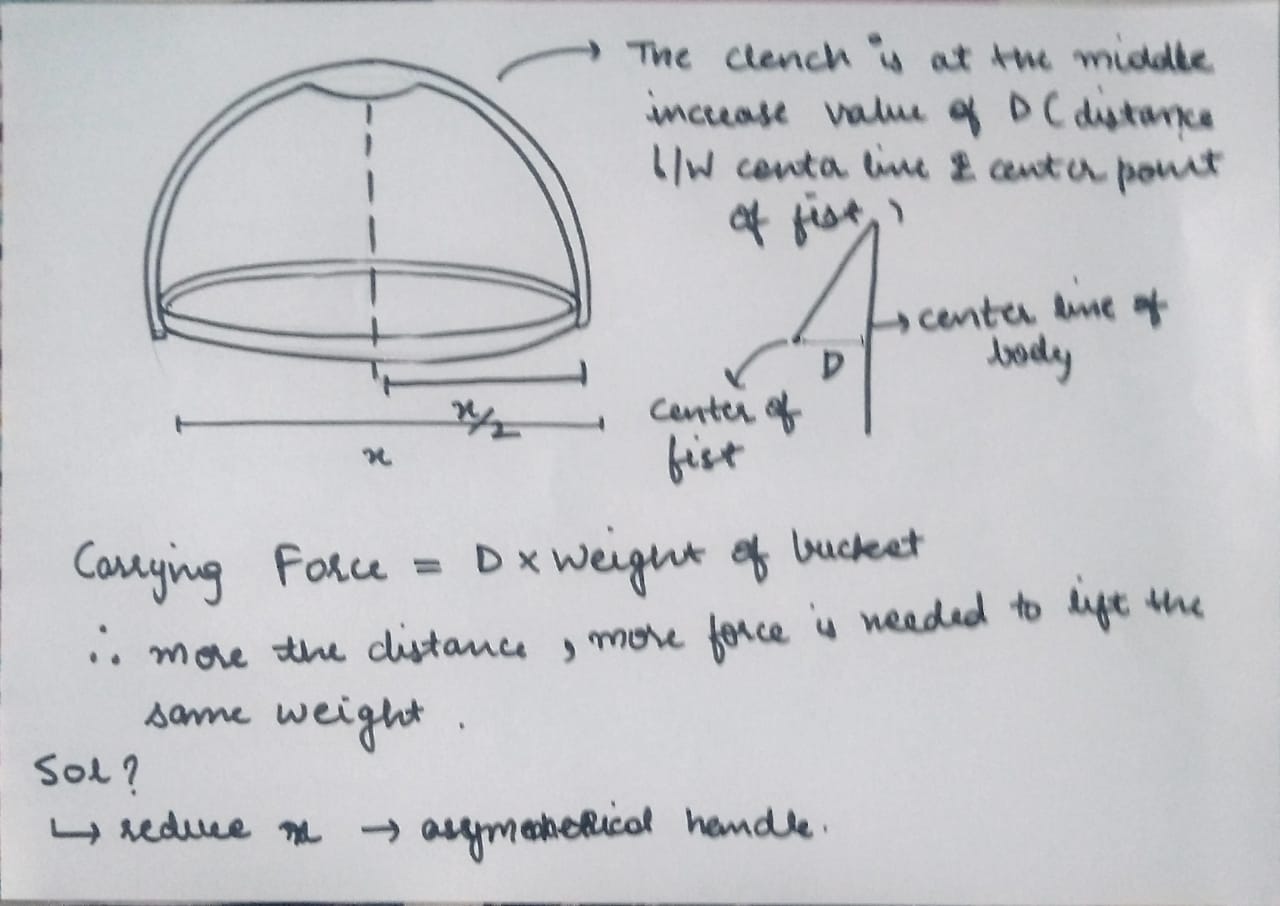 The clench is at the middle
increase value of D (distance
b/w centa line & center point
of fist)
center line of
body
D
center of
fist
x/2
x
Carrying Force = D x Weight of bucket
∴ more the distance, more force is needed to lift the
same weight.
Sol?
↳ reduce x → asymmetherical handle.